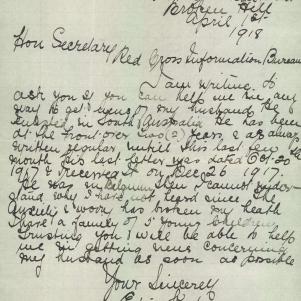 Broken Hill
April 1st
1918
Hon Secretary
Red Cross Information Bureau
I am writing to
ask you if you can help me in any
way to get news of my husband he
enlisted in South Australia he has been
at the front over two (2) years & as always
written regular untill this last few
month his last letter was dated Oct 30th
1917 & received it on Dec 26 1917.
he was in Belgium then I cannot under
stand why I have not heard since the
anxiety & worry has broken my health
I have a family of 5 young children
trusting you will be able to help
me in getting news concerning
my husband as soon as possible
Your Sincerely